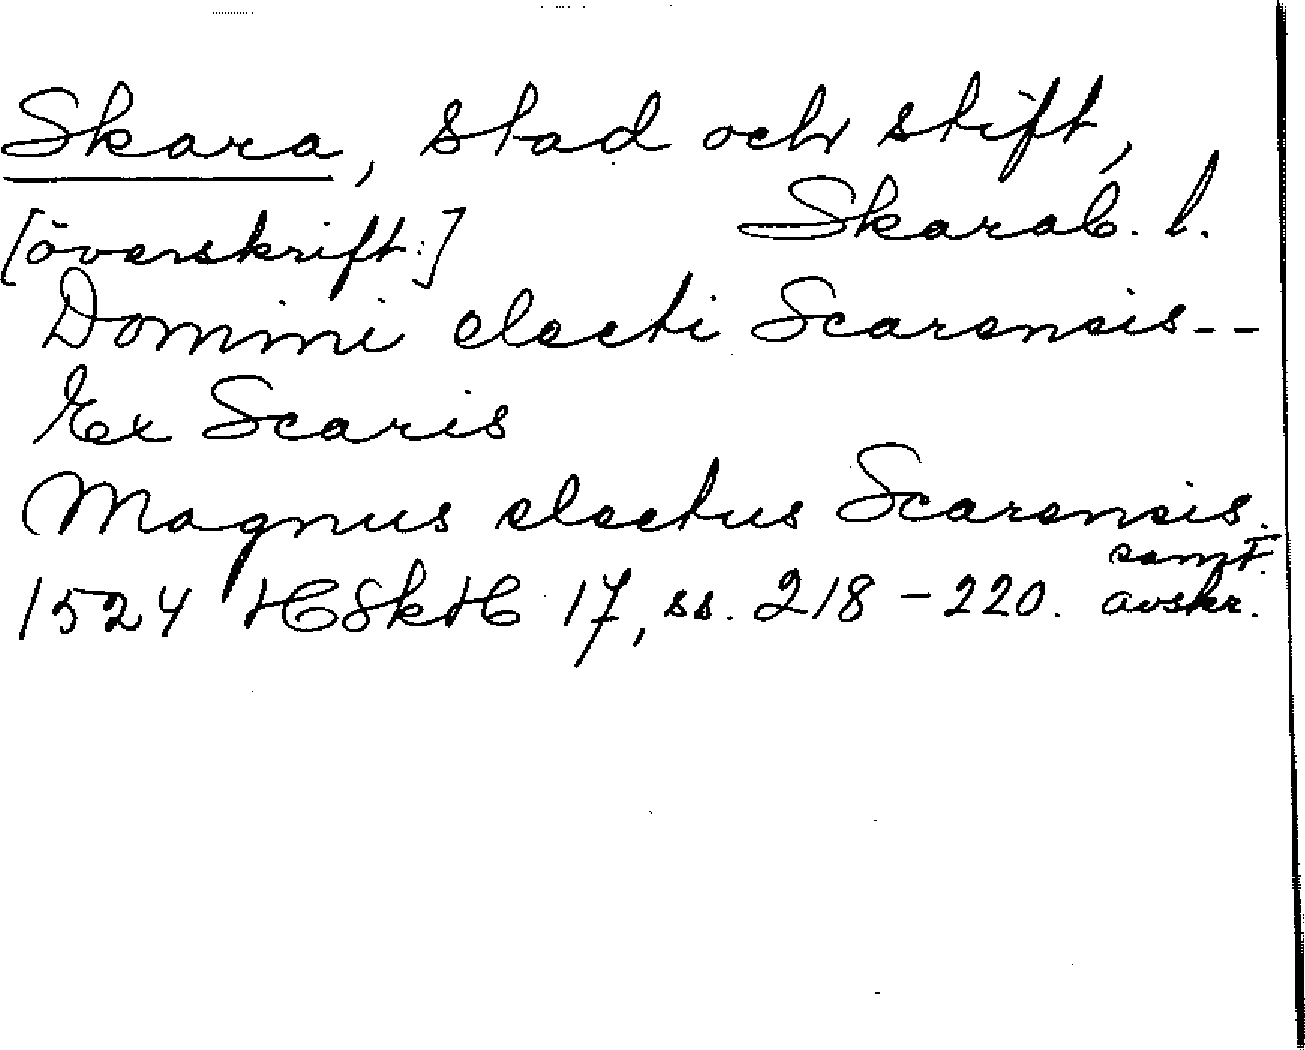 Skara, stad och stift,
Skarab. l.
[överskrift:]
Domini electi Scarensis--
Ex Scaris
Magnus electus Scarensis.
samt.
1524 HSkH 17, ss. 218-220. avskr.